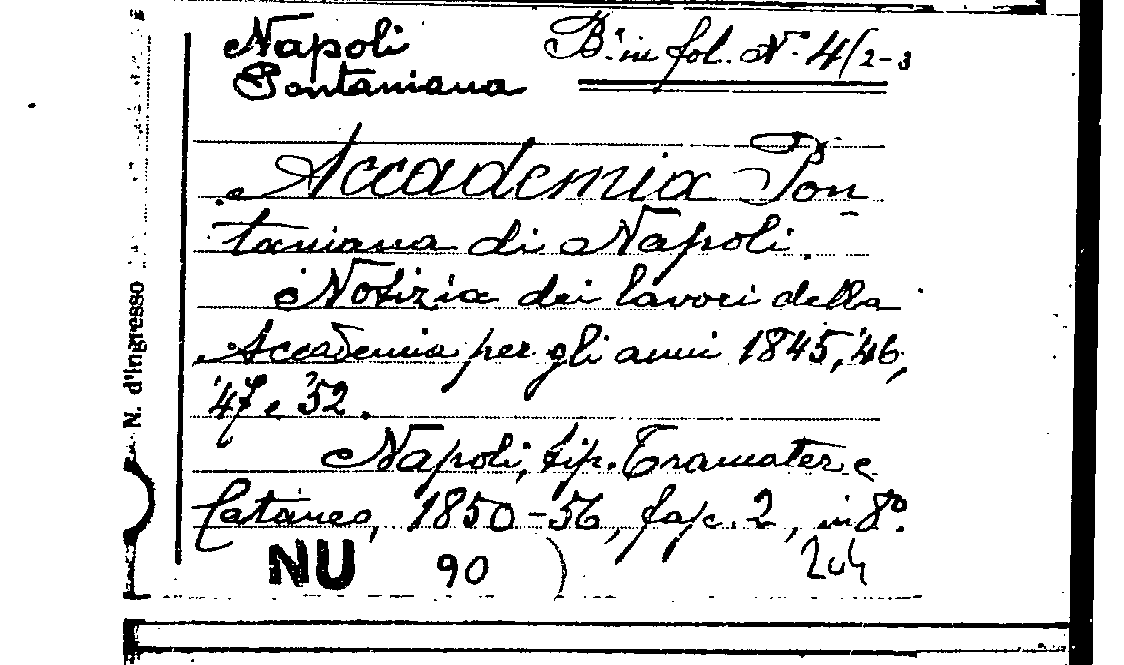 Napoli B.ª in fol. N.º 4/2-3
Pontaniana
Accademia Pon
taniana di Napoli.
Notizia dei lavori della
Accademia per gli anni 1845, '46,
'47 e '52.
Napoli, tip. Tramater e
Cataneo, 1850-56, fasc. 2, in 8º.
NU 90 ) 204
N. d'ingresso